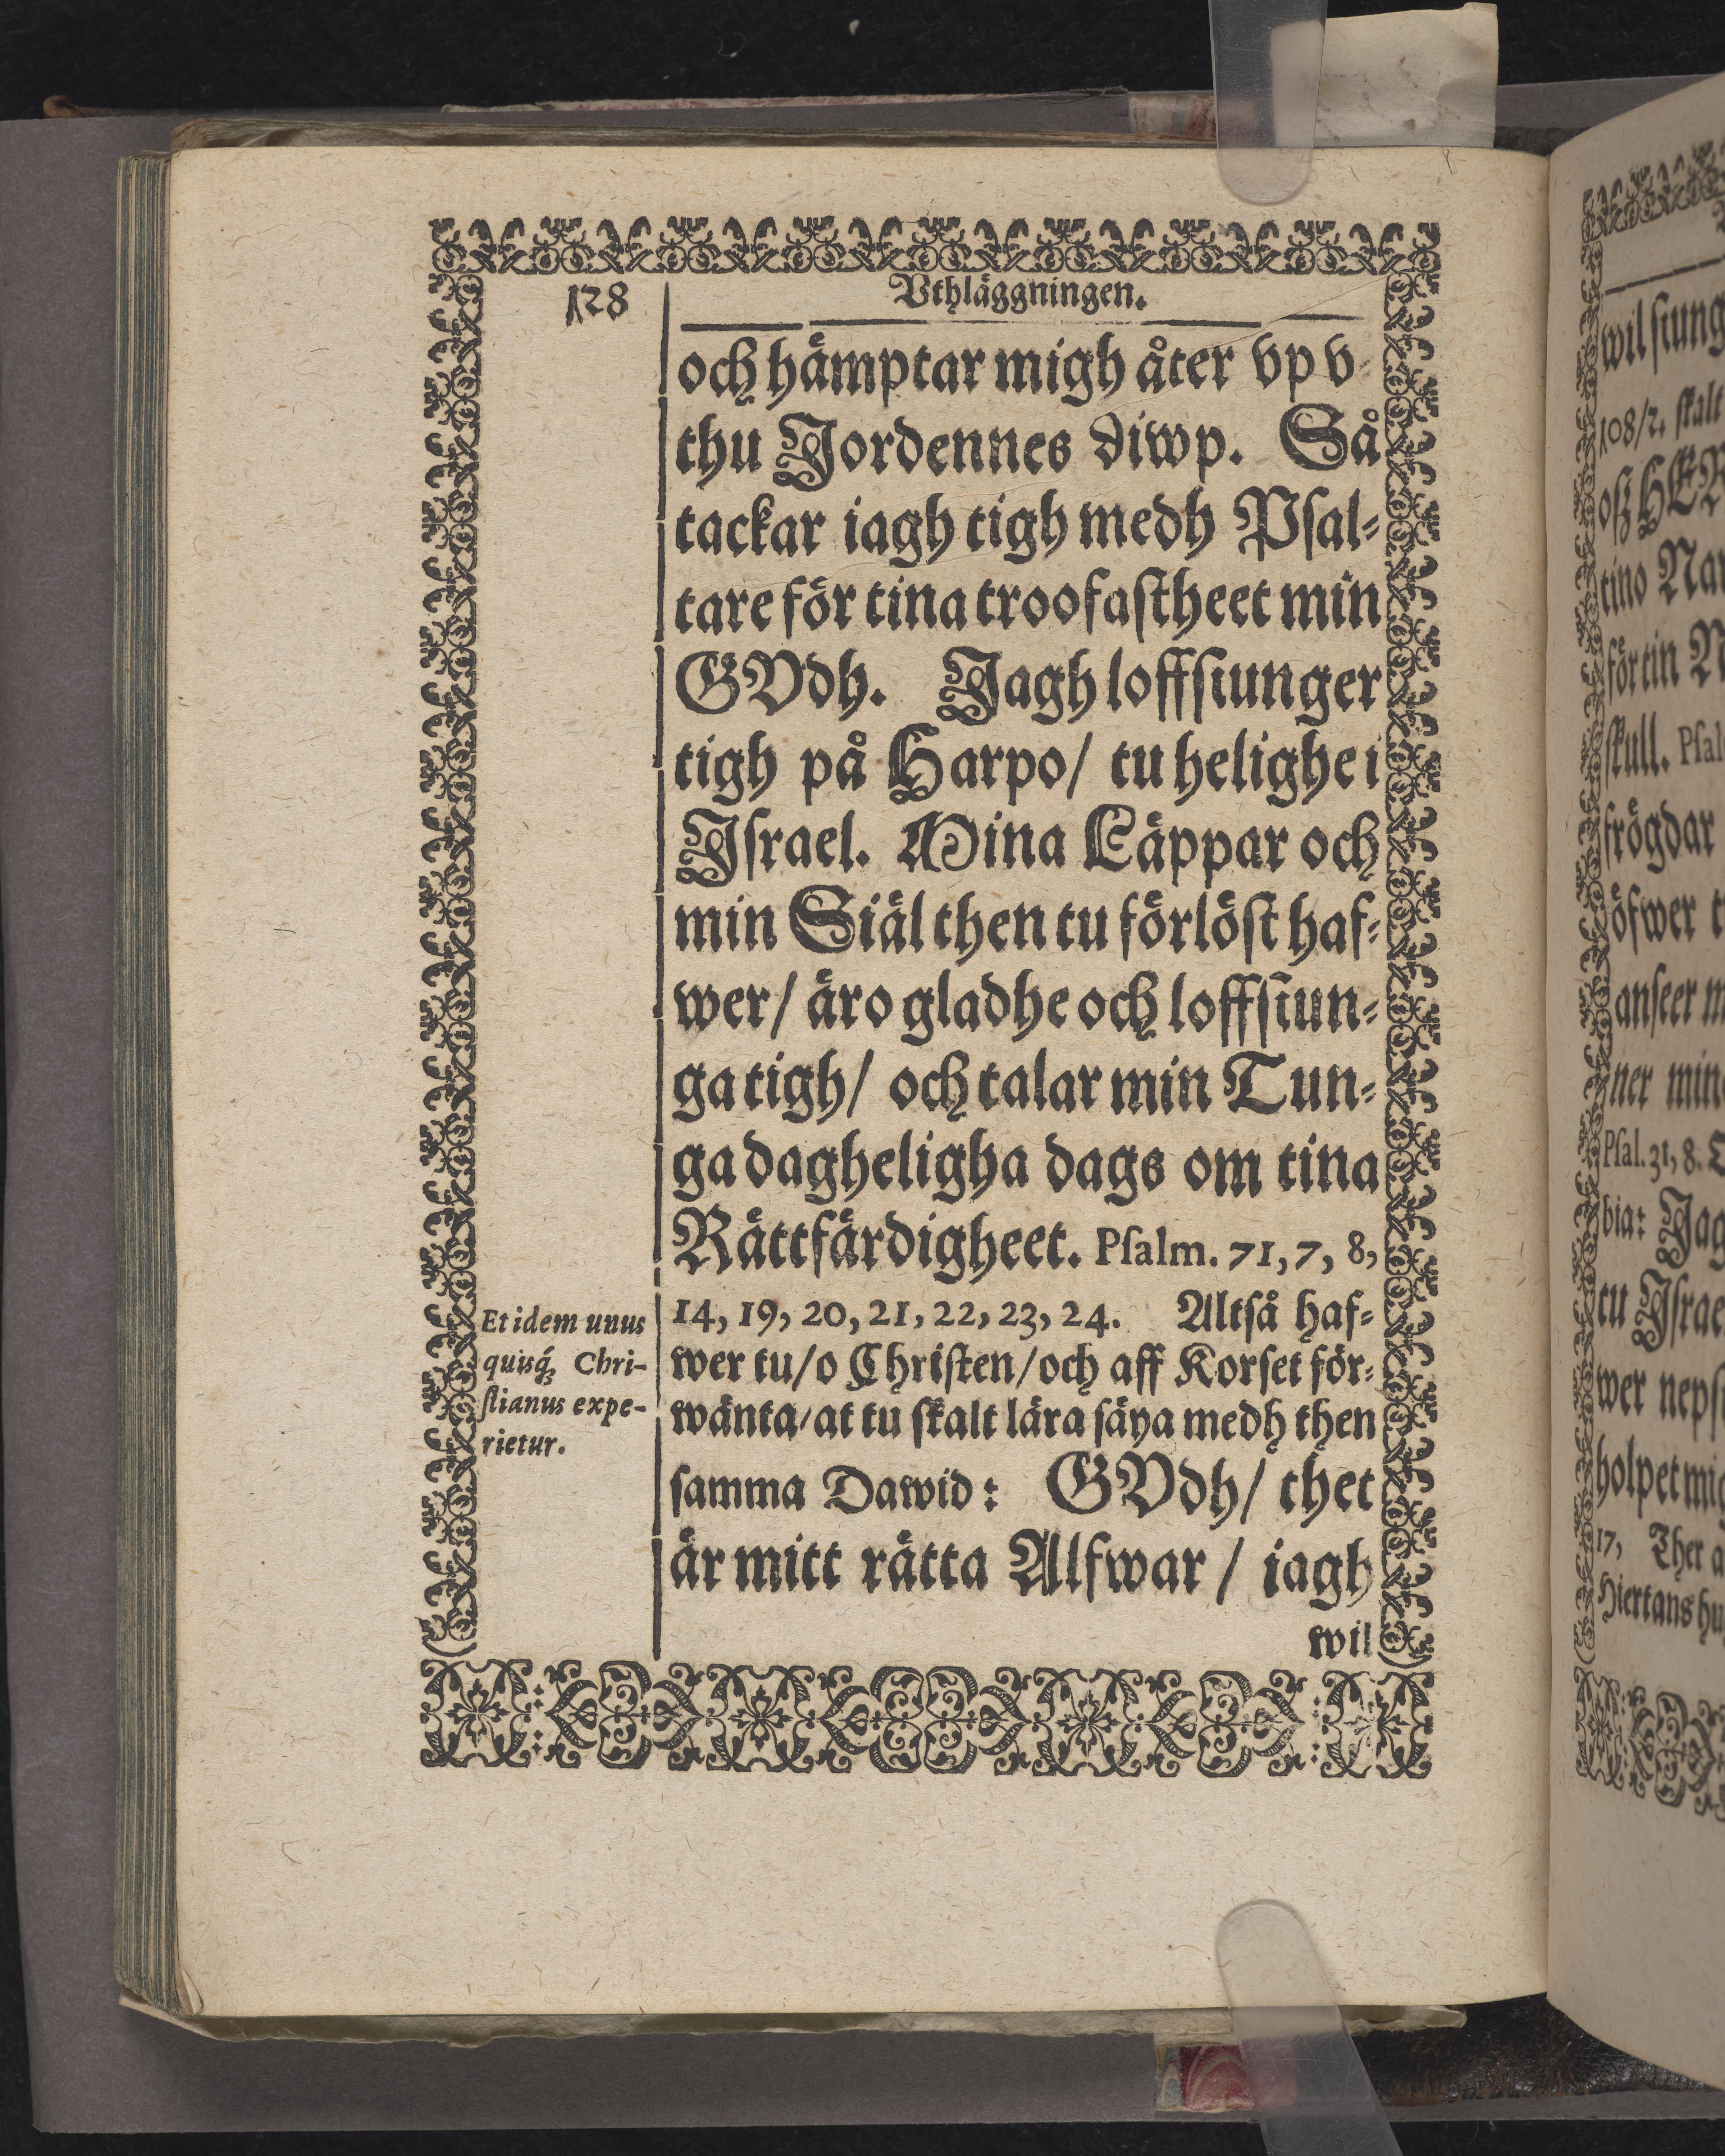 128
Vthläggningen.
och hämptar migh åter vp v
thu Jordennes diwp. Så
tackar iagh tigh medh Psal⸗
tare för tina troofastheet min
GVdh. Jagh loffsiunger
tigh på Harpo/ tu helighe i
Jsrael. Mina Läppar och
min Siäl then tu förlöst haf⸗
wer/ äro gladhe och loffsiun⸗
ga tigh/ och talar min Tun⸗
ga dagheligha dags om tina
Rättfärdigheet. Psalm. 71, 7, 8,
14, 19, 20, 21, 22, 23, 24. Altså haf⸗
wer tu/o Christen/och aff Korset för⸗
wänta/at tu skalt lära säya medh then
samma Dawid: GVdh/ thet
är mitt rätta Alfwar / iagh
wil
Et idem unus
quisq́; Chri-
stianus expe-
rietur.
wil siung
108/2. skalt
oß HER
tino Na
för tin N
skull. Psal
frögdar
öfwer t
anseer m
ner min
Psal. 31, 8.
bia: Jag
tu Jsrae
wer neps
holpet mig
17, Ther ä
Hiertans hu